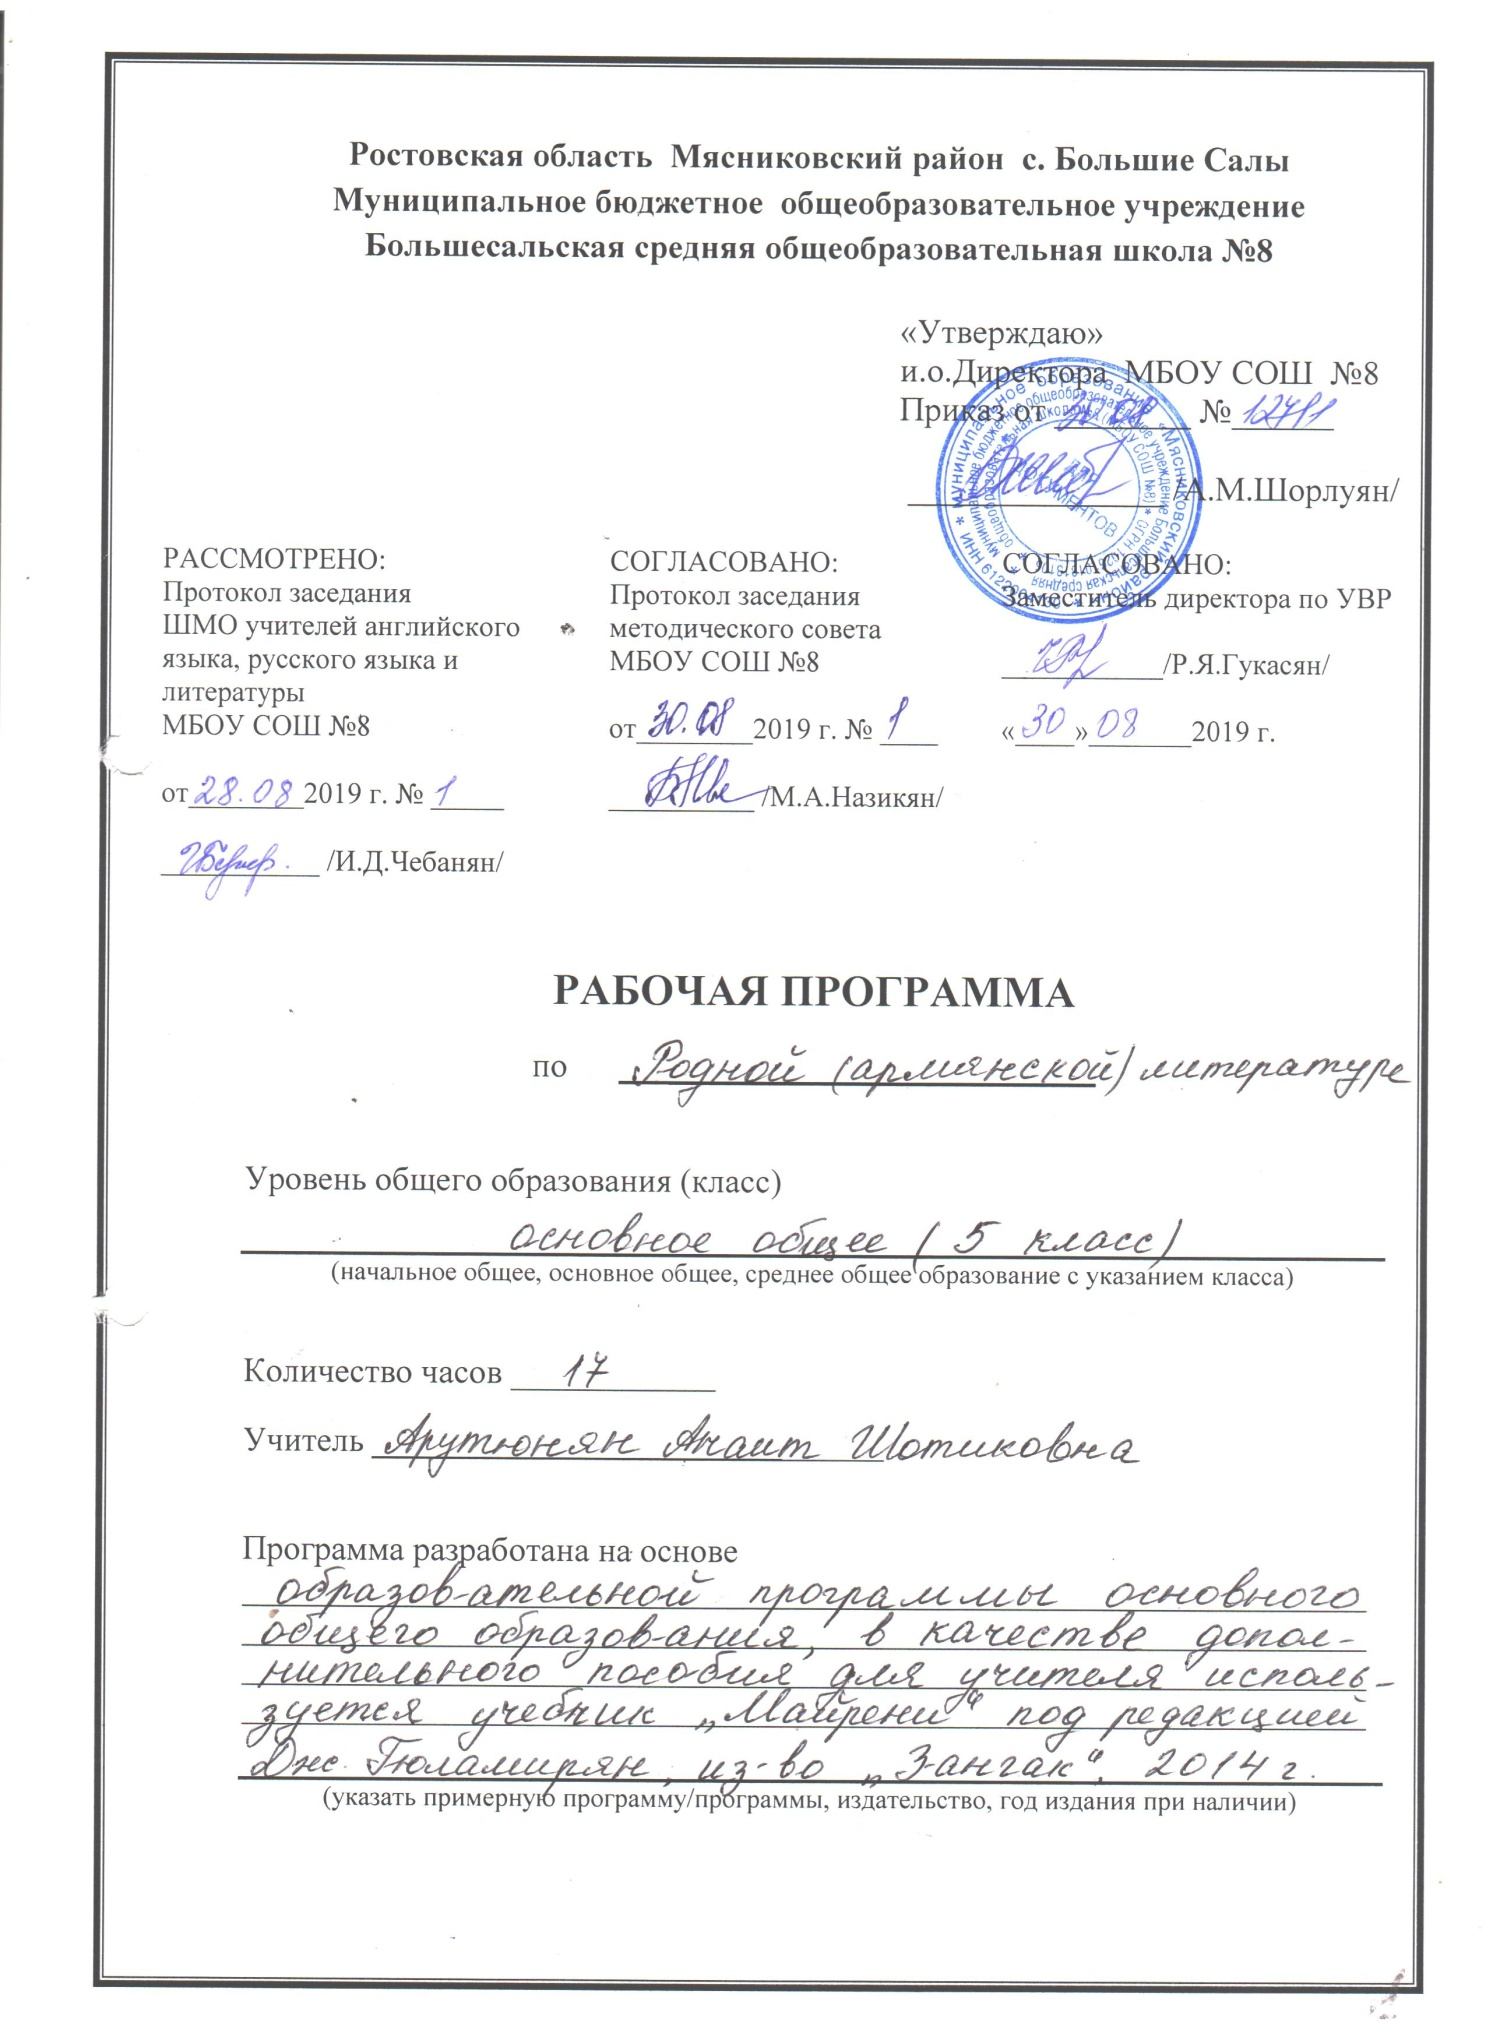 Ростовская область Мясниковский район с. Большие Салы
Муниципальное бюджетное общеобразовательное учреждение
Большесальская средняя общеобразовательная школа №8
«Утверждаю»
и.о.Директора МБОУ СОШ №8
Приказ от №
/А.М.Шорлуян/
РАССМОТРЕНО:
Протокол заседания
ШМО учителей английского
языка, русского языка и
литературы
МБОУ СОШ №8
от 28.08 2019 г. № 1
/И.Д.Чебанян/
СОГЛАСОВАНО:
Протокол заседания
методического совета
МБОУ СОШ №8
от 30.08 2019 г. № 1
/М.А.Назикян/
СОГЛАСОВАНО:
Заместитель директора по УВР
/Р.Я.Гукасян/
«30» 08 2019 г.
РАБОЧАЯ ПРОГРАММА
по Родной (армянской) литературе
Уровень общего образования (класс)
основное общее (5 класс)
(начальное общее, основное общее, среднее общее образование с указанием класса)
Количество часов 17
Учитель Арутюнян Анаит Шотиковна
Программа разработана на основе
образовательной программы основного
общего образования, в качестве допол-
нительного пособия для учителя исполь-
зуется учебник „Майрени“ под редакцией
Дж. Гюламирян, из-во „Зангак“. 2014 г.
(указать примерную программу/программы, издательство, год издания при наличии)